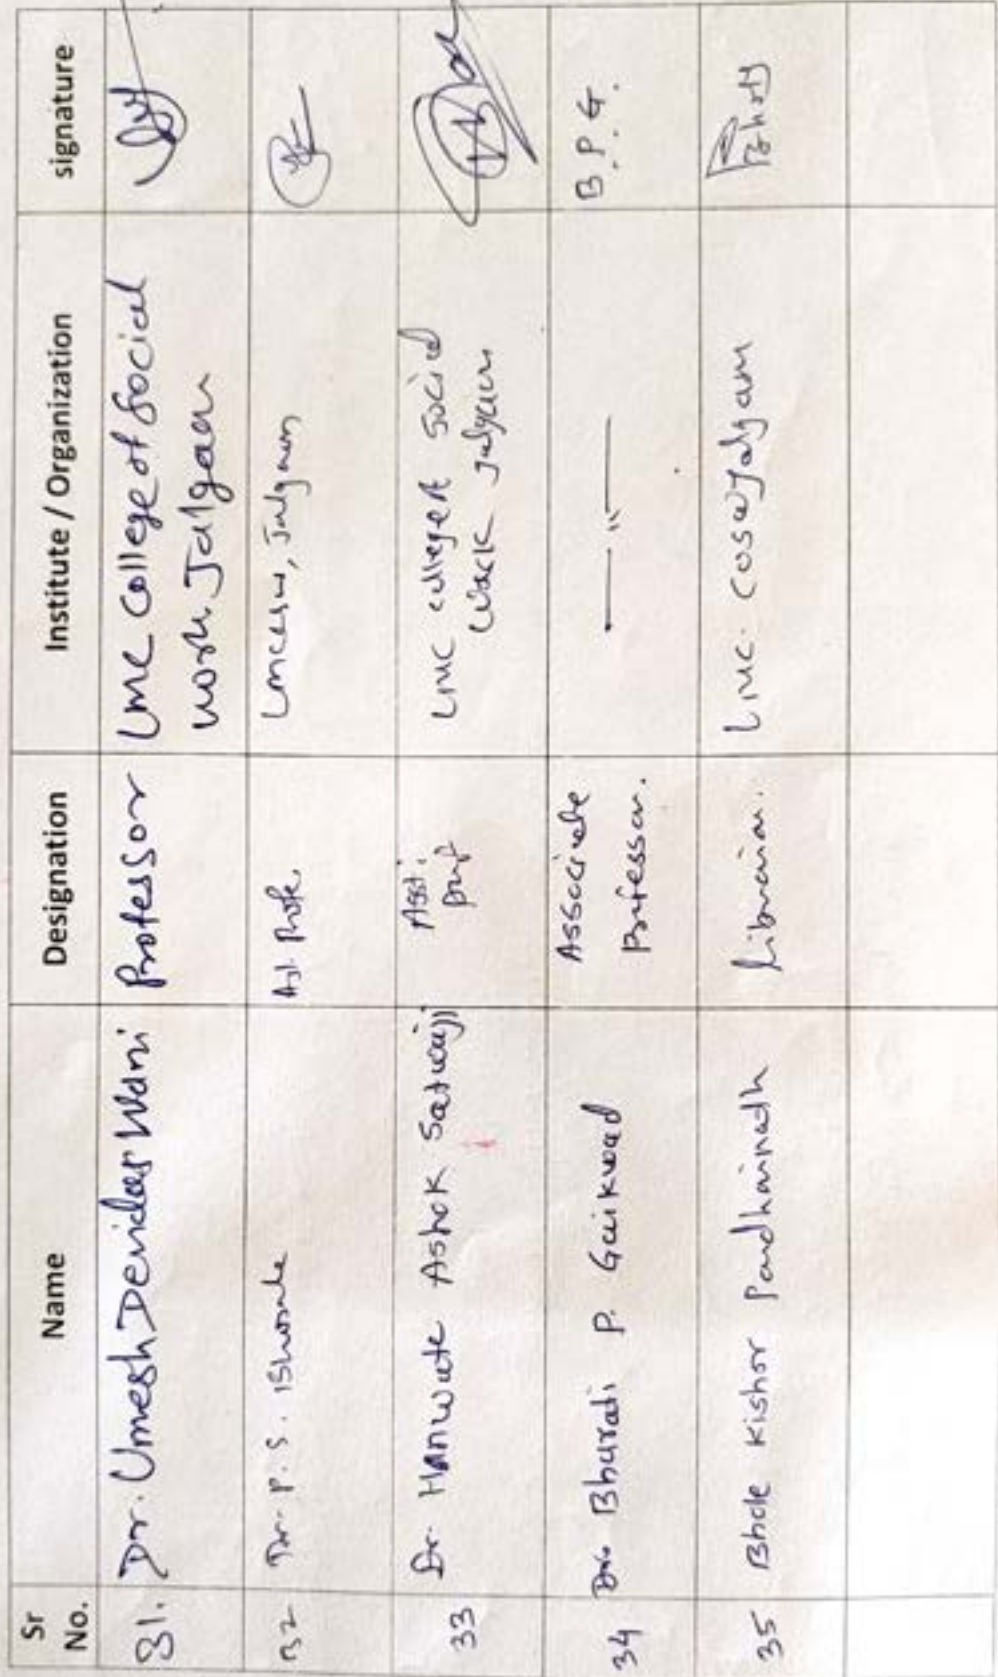 Sr No. Name Designation Institute / Organization signature
31. Dr. Umesh Devidas Wani Professor LMC College of Social
work Jalgaon
32 Dr. P. S. Bhosale Ast. Profe. LMCOSW, Jalgaon
33 Dr. Hanwate Ashok Satwaji Asst. Prof LMC college of Social
Work Jalgaon
34 Dr. Bharati P. Gaikwad Associate Professor. —〃— B. P. G.
35 Bhole Kishor Pandharinath Librarian. LMC. COSW Jalgaon